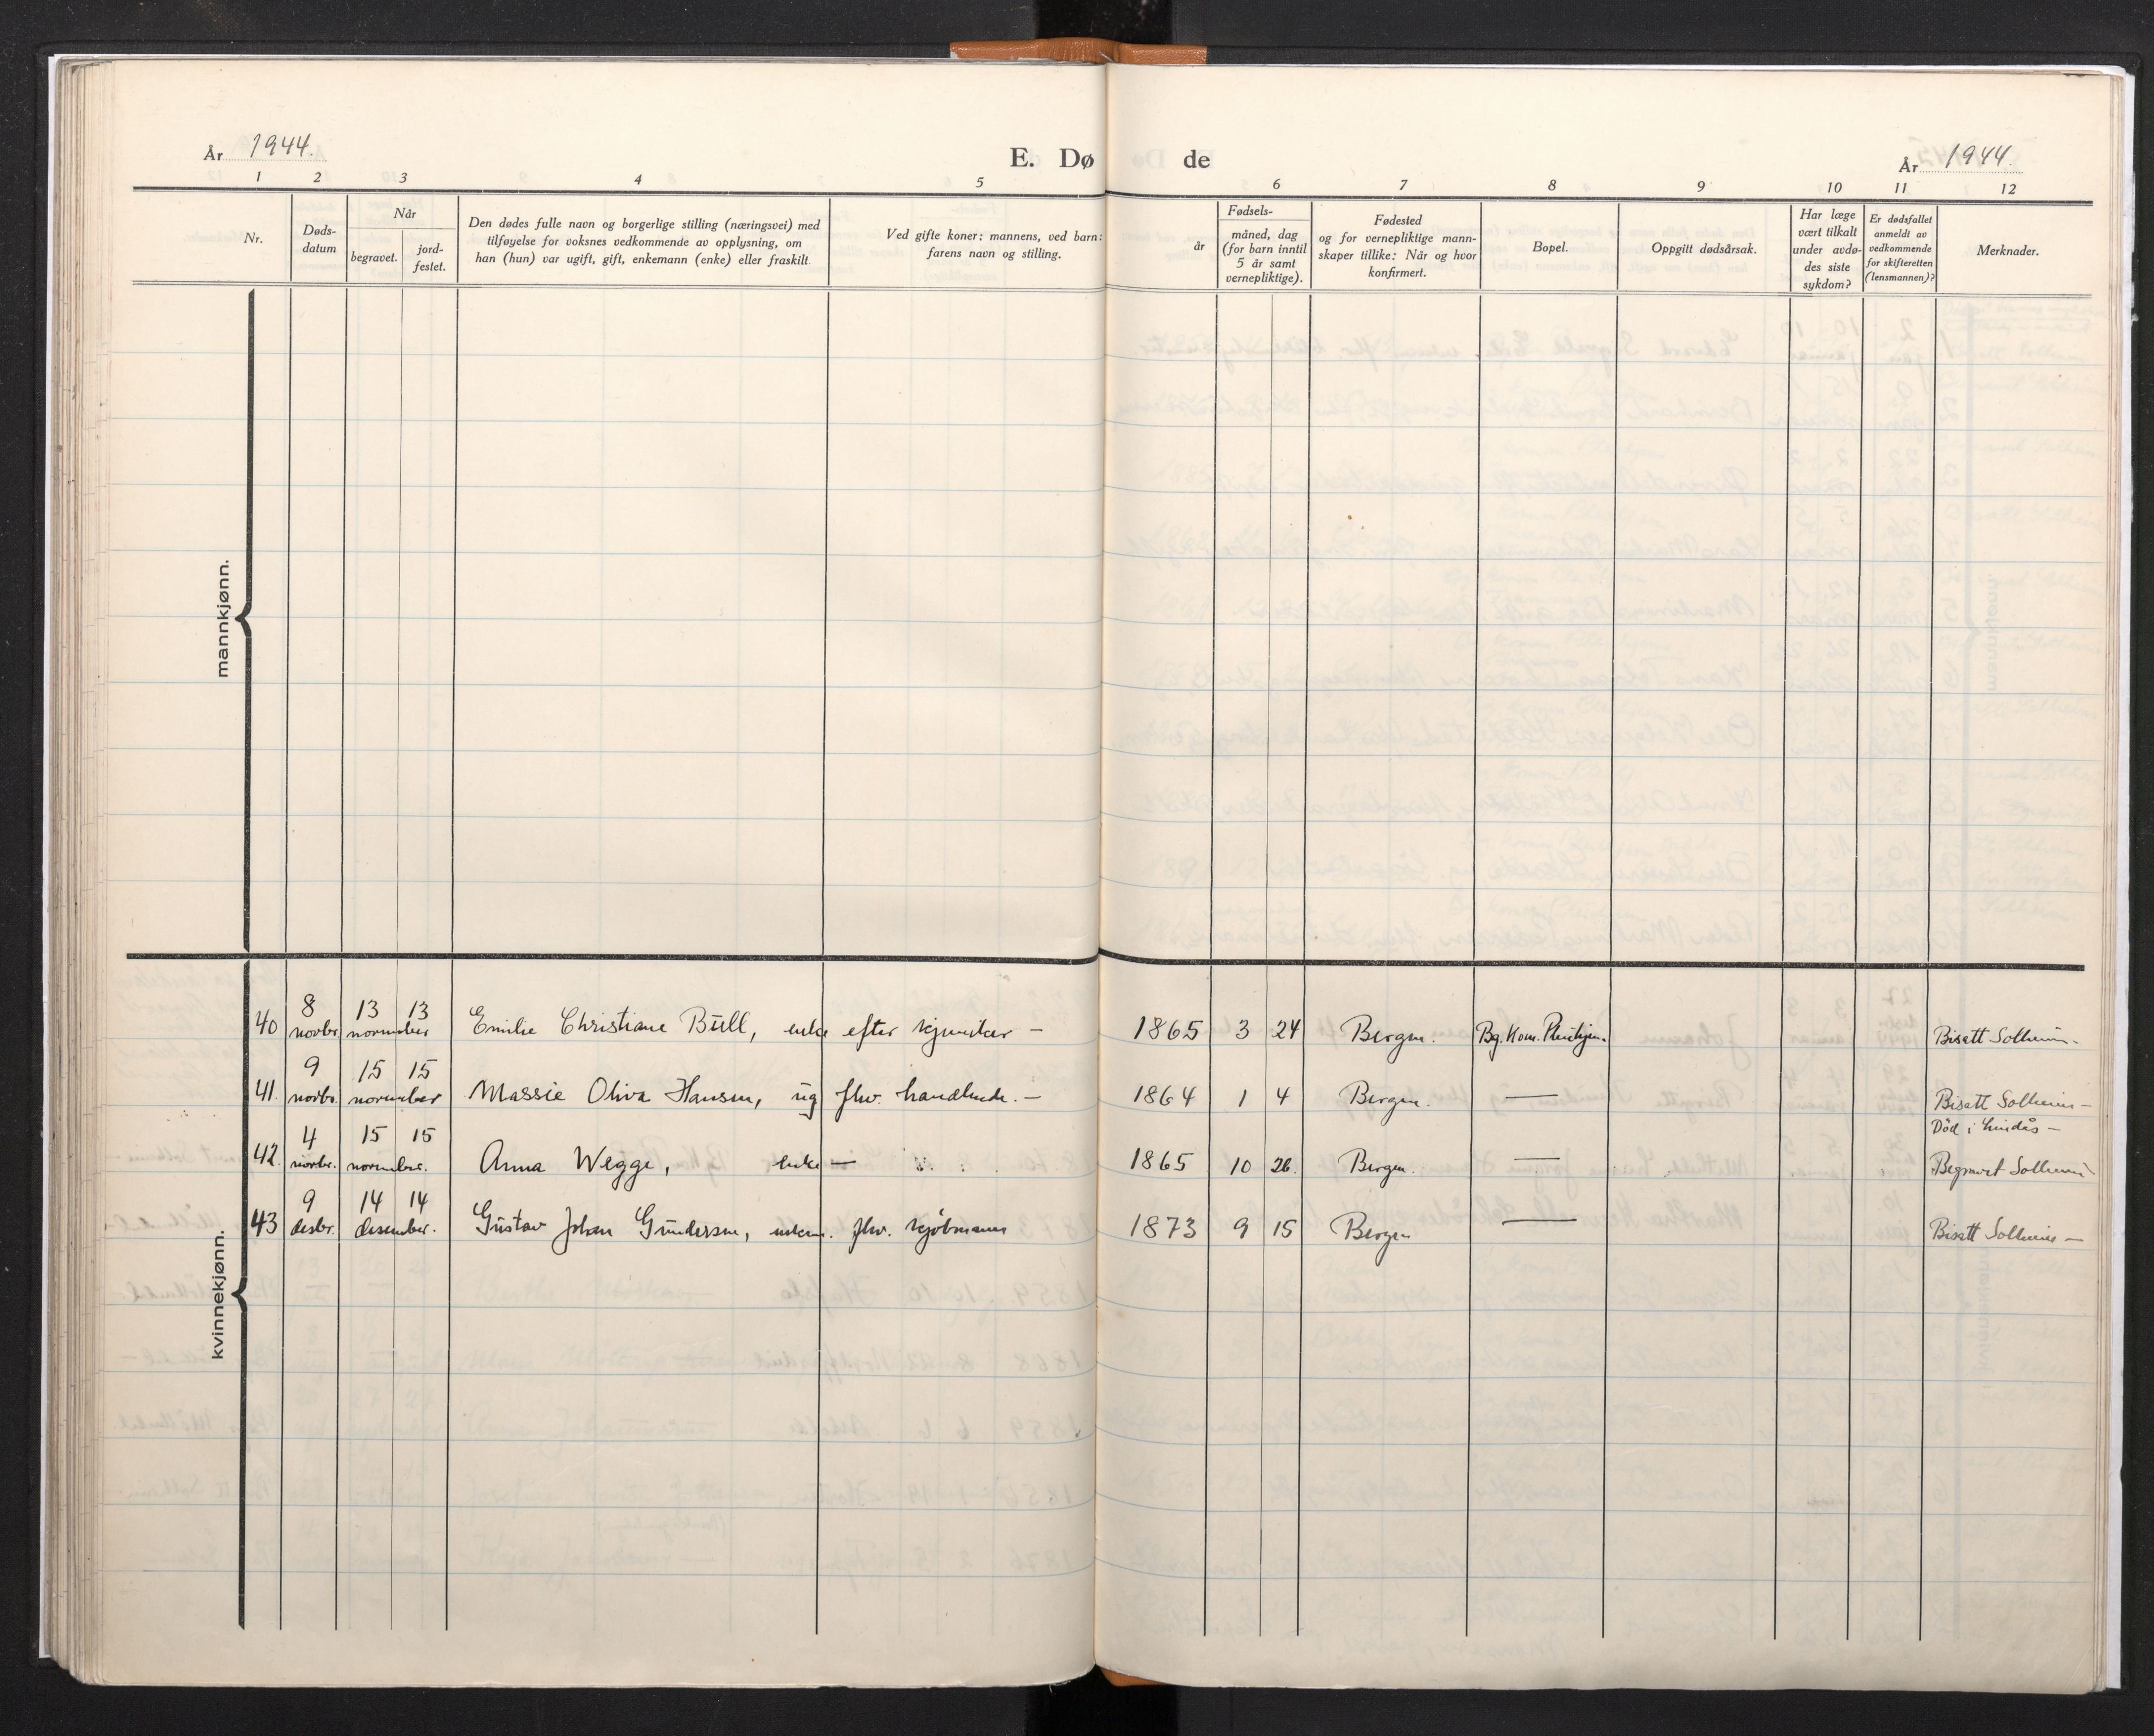 År 1944.
E. Dø de
År 1944.
1 2 3 4 5 6 7 8 9 10 11 12
Nr.
Døds-
datum
Når
begravet.
jord-
festet.
Den dødes fulle navn og borgerlige stilling (næringsvei) med
tilføyelse for voksnes vedkommende av opplysning, om
han (hun) var ugift, gift, enkemann (enke) eller fraskilt
Ved gifte koner: mannens, ved barn:
farens navn og stilling.
år
Fødsels-
måned, dag
(for barn inntil
5 år samt
vernepliktige).
Fødested
og for vernepliktige mann-
skaper tillike: Når og hvor
konfirmert.
Bopel.
Oppgitt dødsårsak.
Har læge
vært tilkalt
under avdø-
des siste
sykdom?
Er dødsfallet
anmeldt av
vedkommende
for skifteretten
(lensmannen)?
Merknader.
mannkjønn.
kvinnekjønn.
8 13 13
40 novbr. november Emilie Christiane Büll, enke efter – 1865 3 24 Bergen. Bg. Kom. Pleiehjem. Bisatt Solheim –
9 15 15
41. novbr. november Massie Oliva Hansen, ug fhv. handlende. – 1864 1 4 Bergen. — Bisatt Solheim –
4 15 15 Död i Lindås –
42. novbr. november. Anna Wegge, enke — 1865 10 26. Bergen. — Begravet Solheim
9 14 14
43 desbr. desember. Gustav Johan Gundersen, enkem. fhv. kjöbmann 1873 9 15 Bergen — Bisatt Solheim –